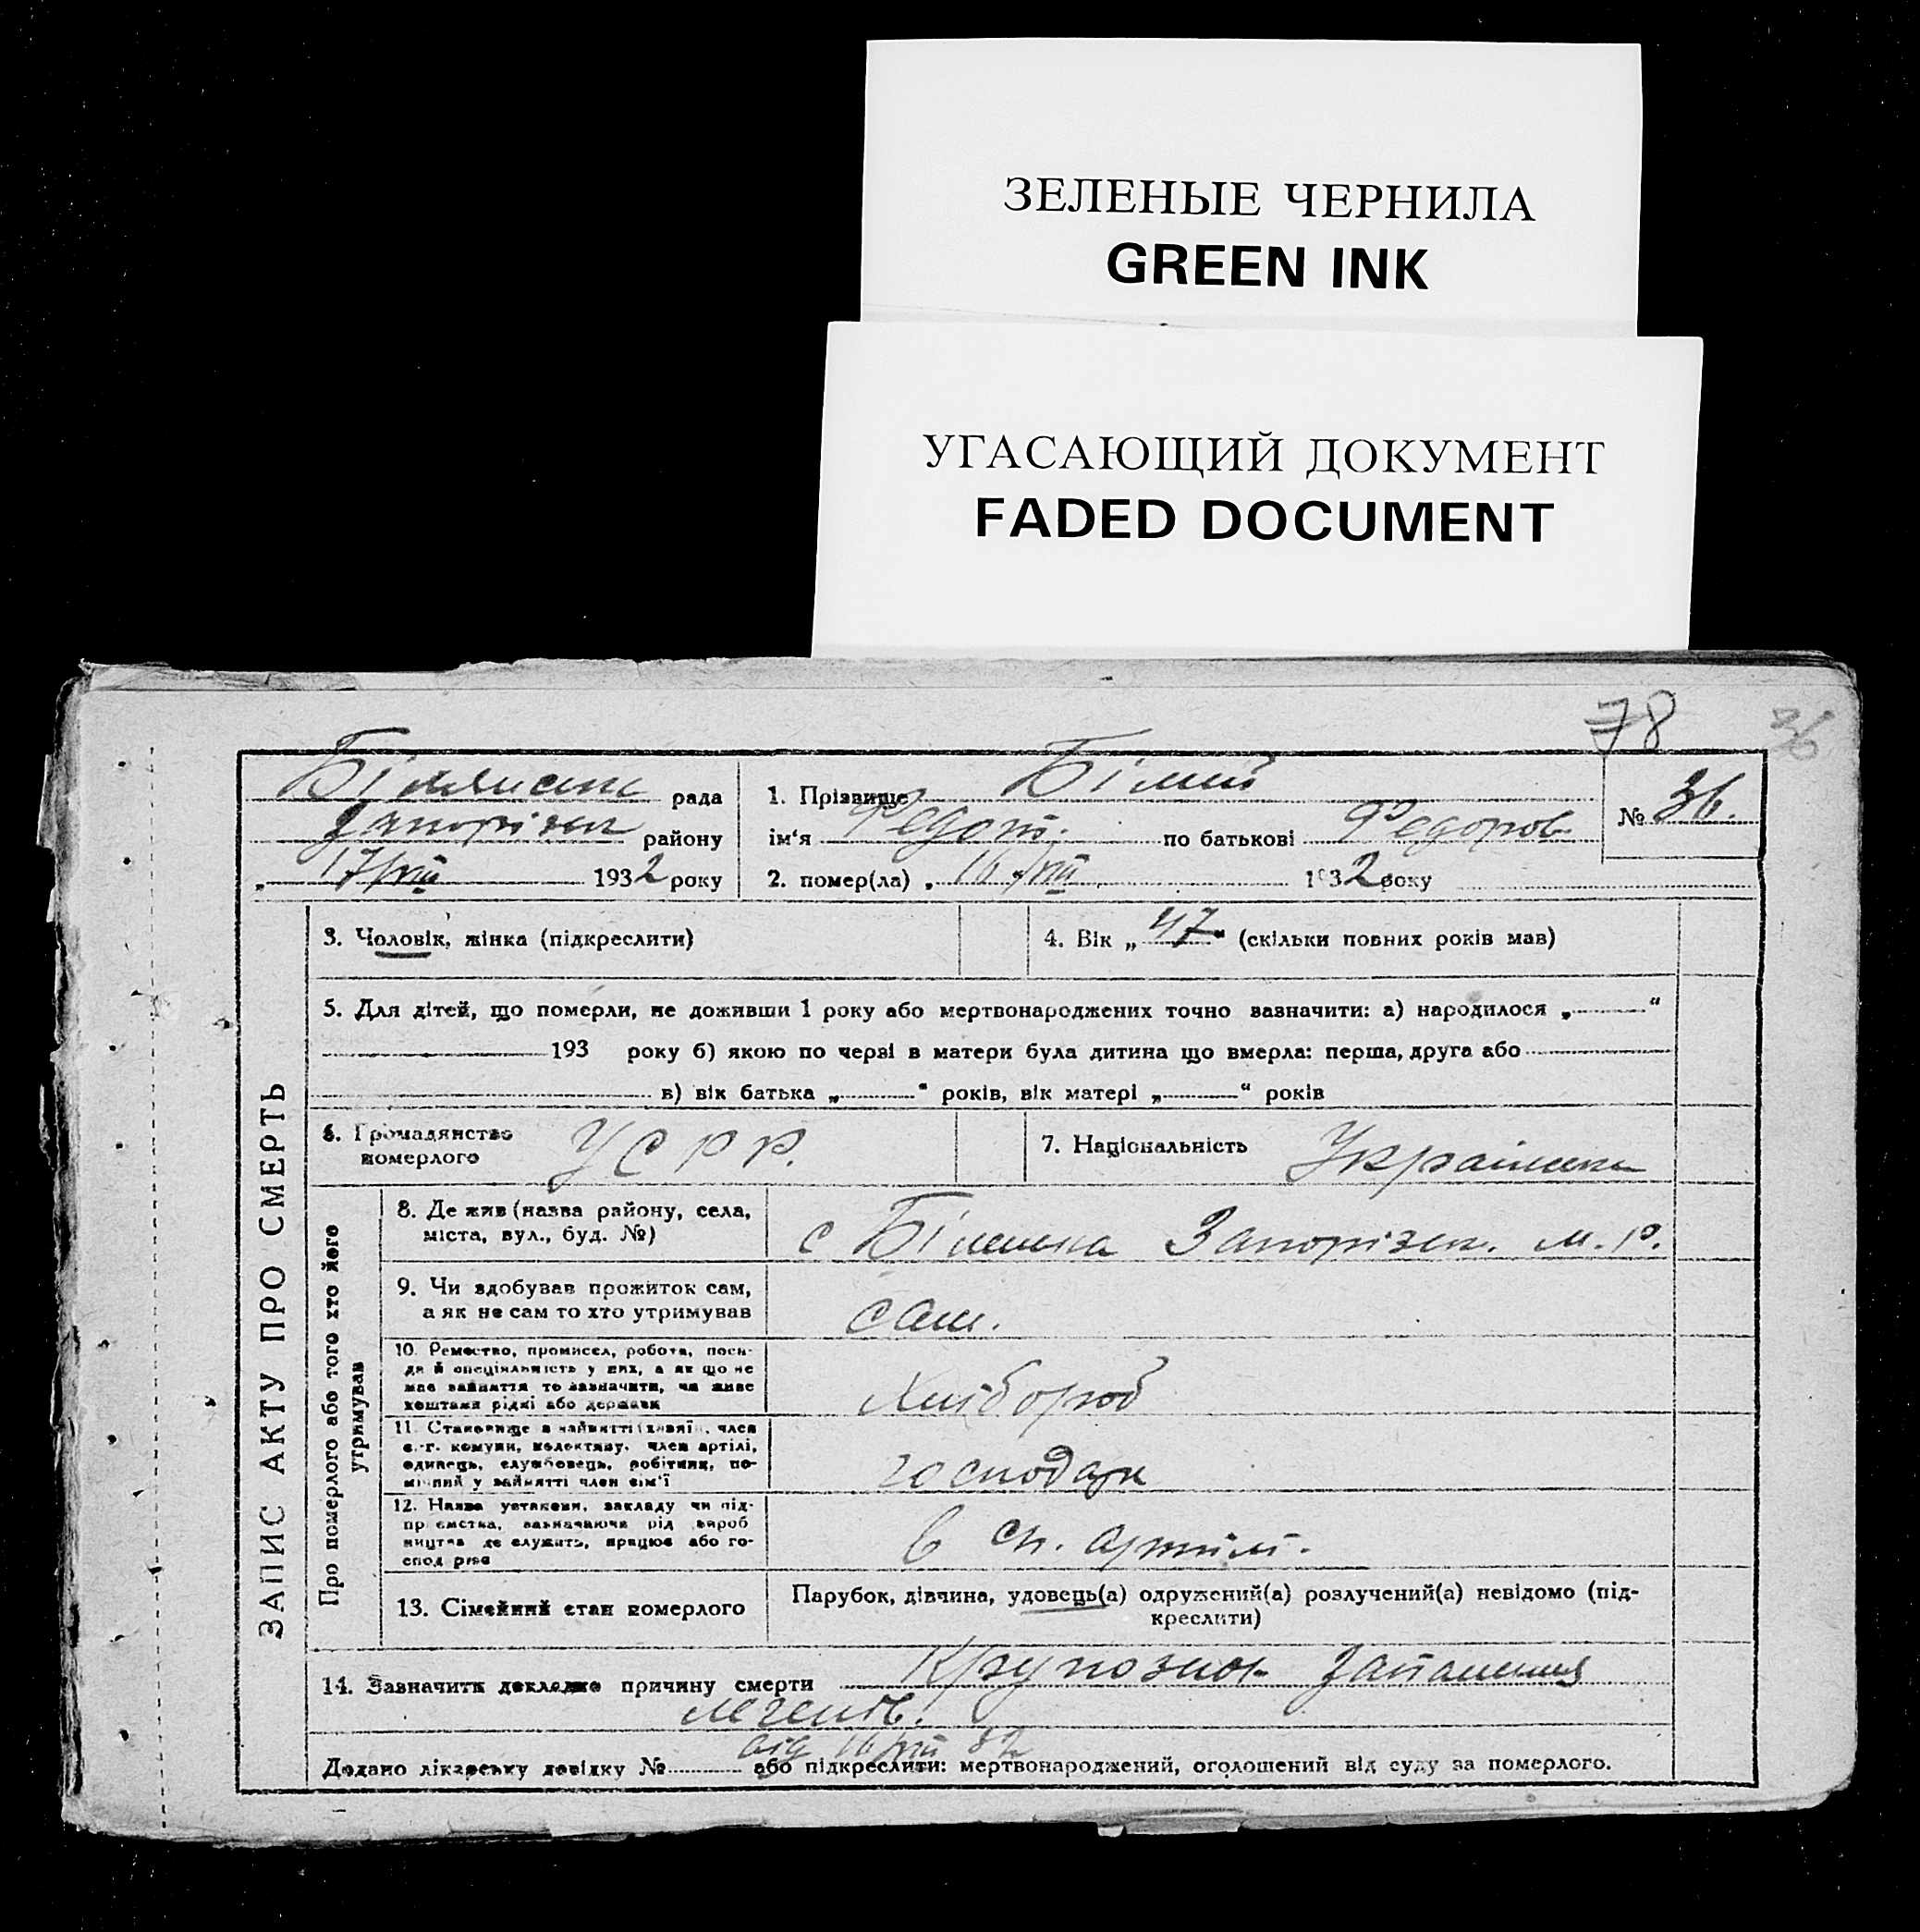 ЗЕЛЕНЫЕ ЧЕРНИЛА
GREEN INK
УГАСАЮЩИЙ ДОКУМЕНТ
FADED DOCUMENT
78
36
рада
району
17/VIII 1932 року
1. Прізвище Білий
ім'я Федот. по батькові Федоров.
2. помер(ла) „ 16 /VIII 1932 року
№ 36.
ЗАПИС АКТУ ПРО СМЕРТЬ
3. Чоловік, жінка (підкреслити)
4. Вік „ 47 “ (скільки повних років мав)
5. Для дітей, що померли, не доживши 1 року або мертвонароджених точно зазначити: а) народилося „ “
193 року б) якою по черзі в матери була дитина що вмерла: перша, друга або
в) вік батька „ “ років, вік матері „ “ років
6. Громадянство
померлого
УСРР.
7. Національність
Про померлого або того хто його
утримував
8. Де жив (назва району, села,
міста, вул., буд. №)
с Запорізьк. м. р.
9. Чи здобував прожиток сам,
а як не сам то хто утримував
сам.
10. Ремество, промисел, робота, поса-
да й спеціяльність у них, а як що не
має зайняття то зазначити, чи живе
коштами рідні або держави
Хлібороб
11. Становище в зайнятті член
с.-г. комуни, колективу, член артілі,
одинець, службовець, робітник, по-
мічний у зайнятті член сім'ї
господар
12. Назва установи, закладу чи під-
приємства, зазначаючи рід вироб
ництва де служить, працює або го-
подарює
в сп. артілі.
13. Сімейний стан померлого
Парубок, дівчина, удовець(а) одружений(а) розлучений(а) невідомо (під-
креслити)
14. Зазначити докладно причину смерти Крупозное запалення
легенів.
від 16/VIII 32
Додано лікарську довідку № або підкреслити: мертвонароджений, оголошений від суду за померлого.